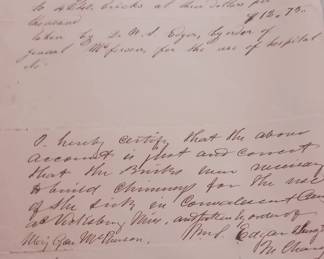 To 4250 bricks at three dollars per
thousand $12.75.
taken by Dr W. S. Edgar, by order of
General McPherson, for the use of hospital
I hereby certify that the above
account is just and correct
that the Bricks were necessary
to build chimneys for the use
of the sick in Convalescent Camp
at Vicksburg Miss, and taken by order of
Maj Gen McPherson. Wm S Edgar Surg
In Charge